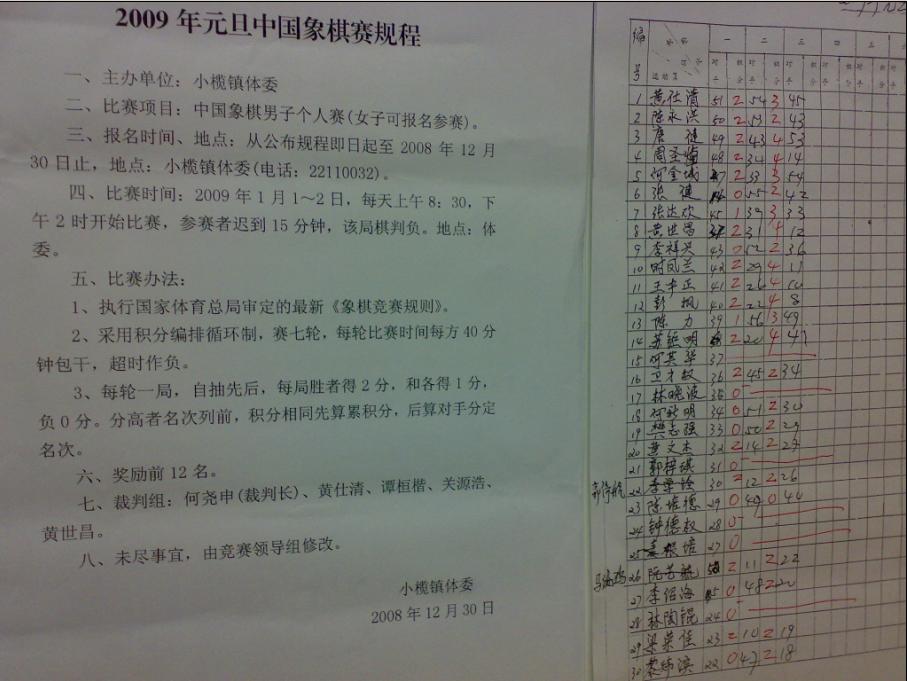 2009 年元旦中国象棋赛规程
一、主办单位：小榄镇体委
二、比赛项目：中国象棋男子个人赛(女子可报名参赛)。
三、报名时间、地点：从公布规程即日起至 2008 年 12 月
30 日止，地点：小榄镇体委(电话：22110032)。
四、比赛时间：2009 年 1 月 1～2 日，每天上午 8：30，下
午 2 时开始比赛，参赛者迟到 15 分钟，该局棋判负。地点：体
委。
五、比赛办法：
1、执行国家体育总局审定的最新《象棋竞赛规则》。
2、采用积分编排循环制，赛七轮，每轮比赛时间每方 40 分
钟包干，超时作负。
3、每轮一局，自抽先后，每局胜者得 2 分，和各得 1 分，
负 0 分。分高者名次列前，积分相同先算累积分，后算对于分定
名次。
六、奖励前 12 名。
七、裁判组：何尧申(裁判长)、黄仕清、谭桓楷、关源浩、
黄世昌。
八、未尽事宜，由竞赛领导组修改。
小榄镇体委
2008 年 12 月 30 日
编号 一 二 三 四 五
1 黄仕清 51 2 54 3 45
2 陈永洪 50 2 53 2 43
3 唐健 49 2 43 4 53
4 周圣 48 2 34 4 14
5 何金城 2 33 3 54
6 张健 0 55 2 42
7 张达欢 45 1 39 3 33
8 黄世昌 2 31 4 12
9 李禎兴 43 0 52 2 36
10 凤兰 42 2 29 4
11 王本正 41 2 26 4
12 彭枫 40 2 22 4 8
13 陈力 39 1 56 3 49
14 明 2 20 4 47
15 何英华 37
16 卫才权 36 2 45 2 34
17 林晓波 35 0
18 何 明 34 0 51 2 30
19 樊志强 33 0 50 2 29
20 黄文杰 32 2 14 2 27
21 郭梓琪 31 0
22 李 30 2 12 2 26
23 陈培德 29 0 49 0 44
24 钟德权 28 0
25 根培 27 0
26 阮 2 11 2 22
27 李绍海 0 48 2 20
28 林陶锟 24 0
29 梁荣佳 23 2 10 2 19
30 滨 22 0 47 2 18